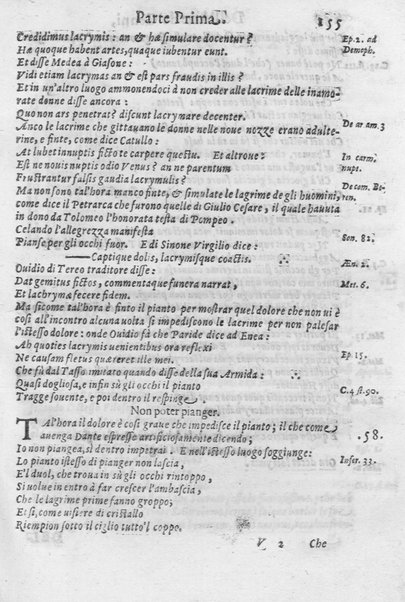 Parte Prima. 155
Credidimus lacrymis: an & hæ simulare docentur? Ep. 2. ad
Hæ quoque habent artes, quaque iubentur eunt. Demoph.
Et disse Medea à Giasone:
Vidi etiam lacrymas an & est pars fraudis in illis?
Et in un'altro luogo ammonendoci à non creder alle lacrime delle inamo-
rate donne disse ancora:
Quo non ars penetrat? discunt lacrymare decenter.
Anco le lacrime che gittauano le donne nelle noue nozze erano adulte- De ar am. 3
rine, e finte, come dice Catullo:
At lubet innuptis ficto te carpere questu. Et altroue: In carm.
Est ne nouis nuptis odio Venus? an ne parentum nupt.
Frustrantur falsis gaudia lacrimulis?
Ma non sono tal'hora manco finte, & simulate le lagrime de gli huomini, De com. Be-
come dice il Petrarca che furono quelle di Giulio Cesare, il quale hauuta ren.
in dono da Tolomeo l'honorata testa di Pompeo.
Celando l'allegrezza manifesta
Pianse per gli occhi fuor. E di Sinone Virgilio dice: Son. 82.
—— Captique dolis, lacrymisque coactis. Æn. 2.
Ouidio di Tereo traditore disse:
Dat gemitus fictos, commentaque funera narrat, Met. 6.
Et lachrymæ fecere fidem.
Ma sicome tal'hora è finto il pianto per mostrar quel dolore che non ui è
così all'incontro alcuna uolta si impediscono le lacrime per non palesar
l'istesso dolore: onde Ouidio fà che Paride dice ad Enea:
Ah quoties lacrymis uenientibus ora reflexi Ep. 15.
Ne causam fletus quæreret ille mei.
Che fù dal Tasso imitato quando disse della sua Armida:
Quasi dogliosa, e infin sù gli occhi il pianto C. 4 st. 90.
Tragge souente, e poi dentro il respinge.
Non poter pianger.
Tal'hora il dolore è così graue che impedisce il pianto; il che come
auenga Dante espresse artificiosamente dicendo; 58.
Io non piangea, sì dentro impetrai. E nell'istesso luogo soggiunge:
Lo pianto istesso di pianger non lascia, Infer. 33.
E'l duol, che troua in sù gli occhi rintoppo,
Si uolue in entro à far crescer l'ambascia,
Che le lagrime prime fanno groppo;
Et sì, come uisiere di cristallo
Riempion sotto il ciglio tutto'l coppo.
V 2 Che